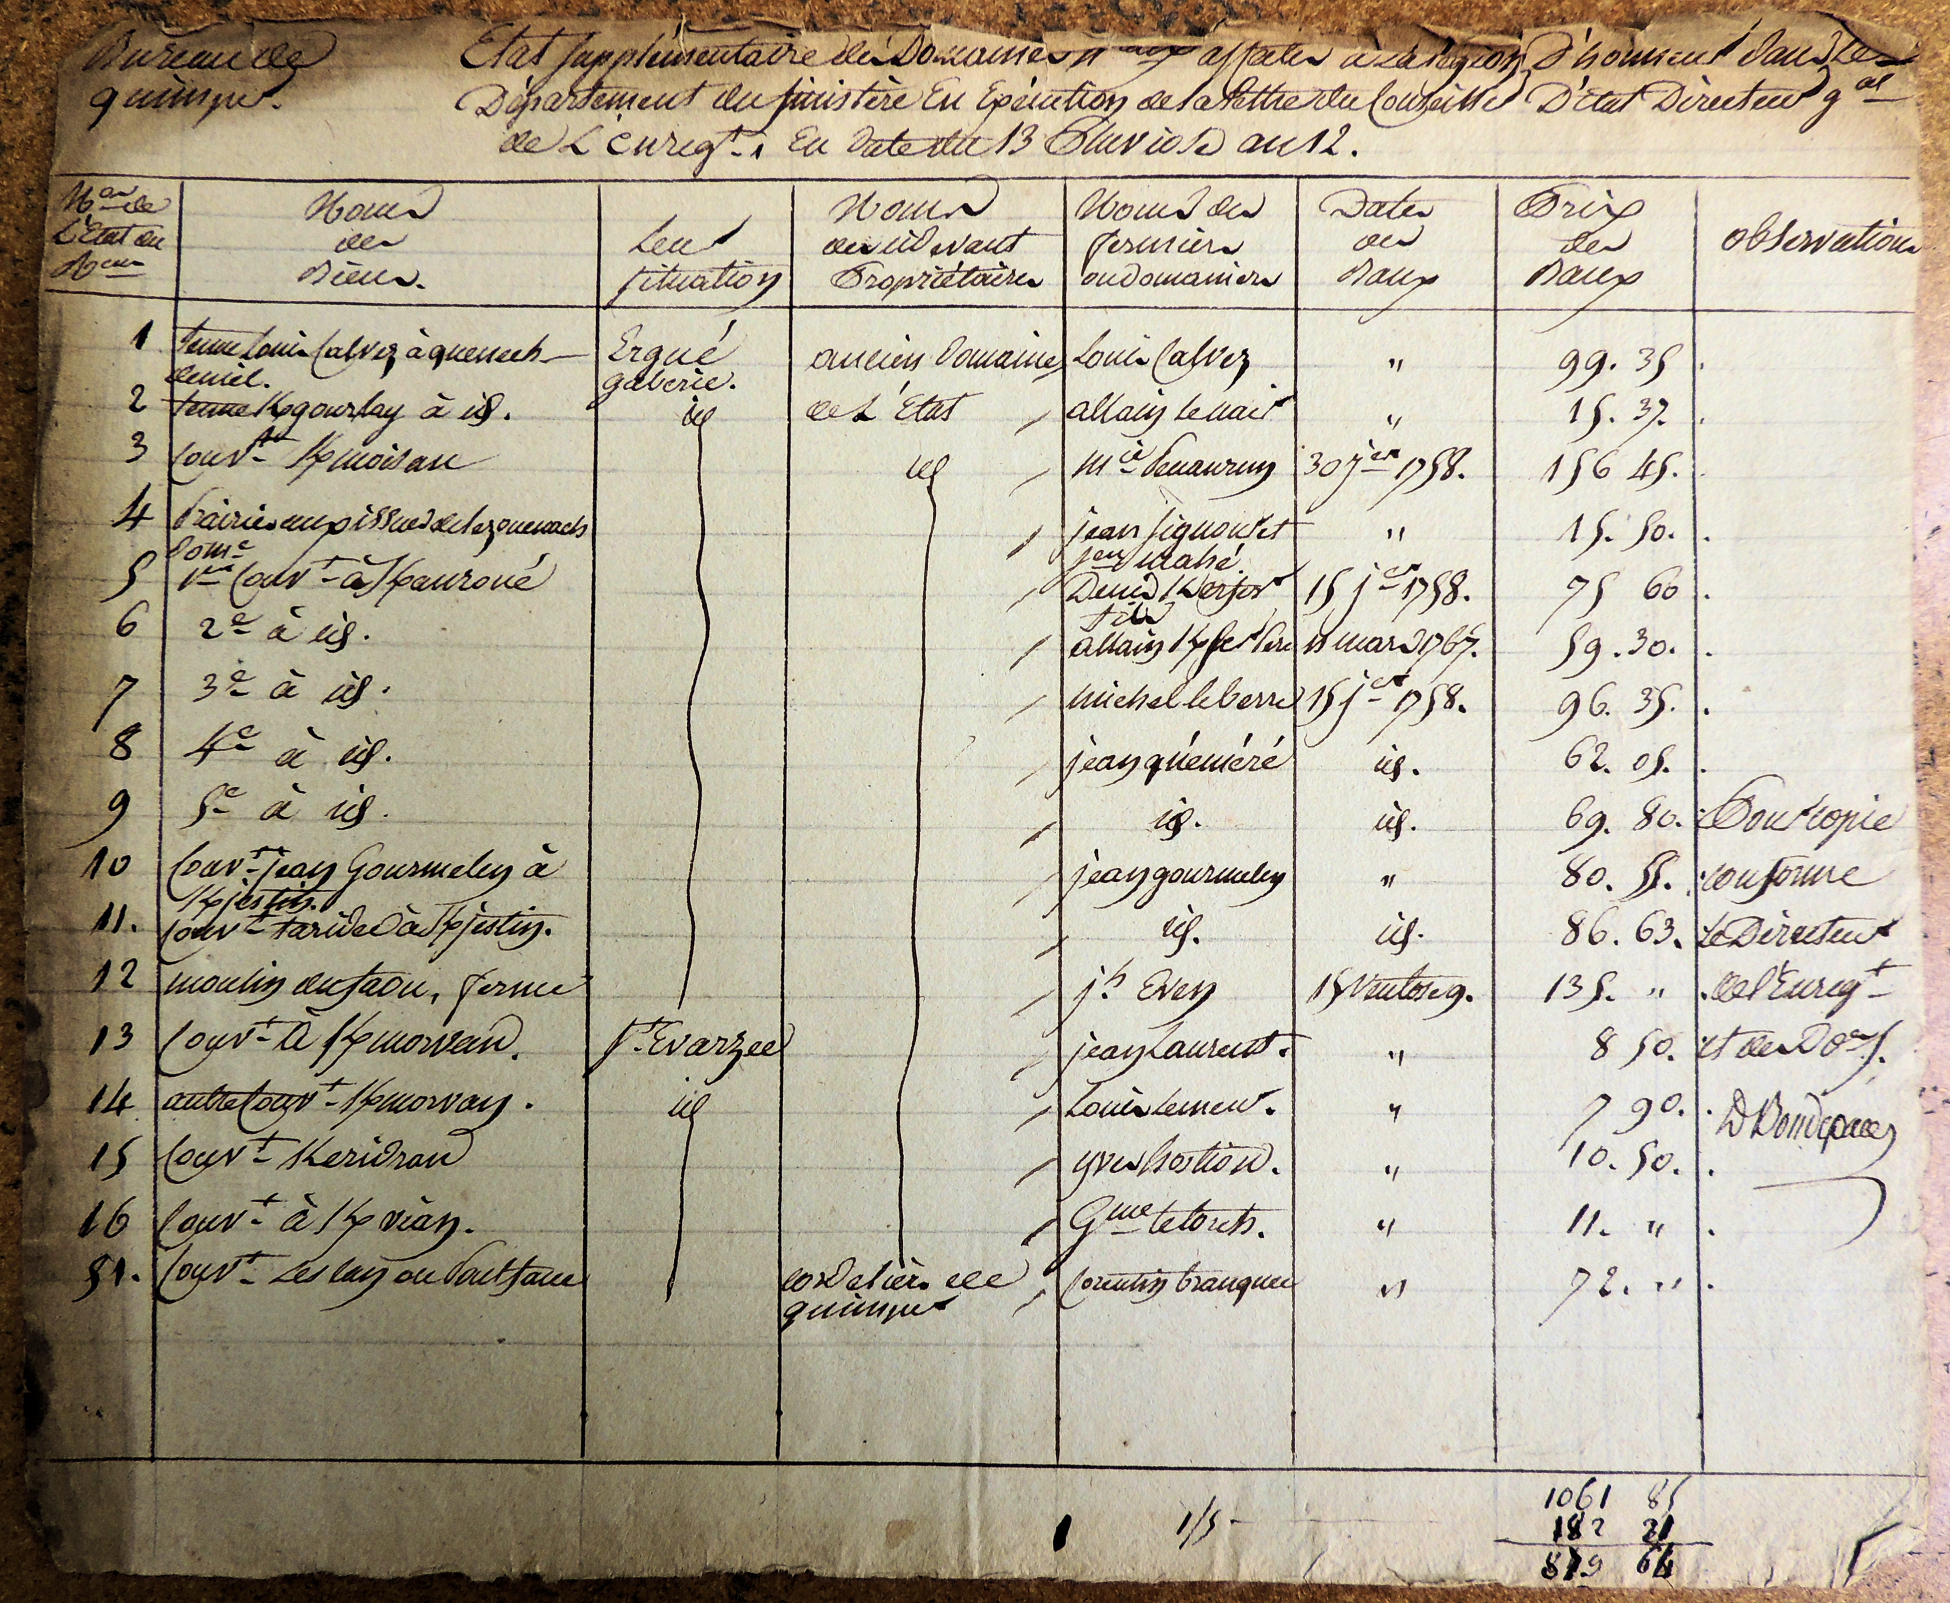 Bureau de
quimper.
Etat supplémentaire des Domaines N aux affectés à la légion D'honneur dans le
Département du finistère En Exécution de la lettre du Conseiller D'état Directeur gal
de L'Enregt. En date du 13 Pluviose an 12.
Nos de L'Etat du
Noms des Biens.
Leur situation
Noms des cidevant Propriétaires
Noms des fermiers ou domaniers
Dates des Baux
Prix des Baux
observations
1 tenue Louis Calvez à quenech- Ergué ancien domaine Louis Calvez " 99. 35.
deniel. gaberic.
2 tenue K/gourlay à id. id de L'Etat allain le nair " 15. 37.
3 Convt K/moisan id Mie Penanrun 30 jer 1758. 156 45.
4 Prairies aux issues de lezouenach jean signour et " 15. 50.
dome jen mahé
5 1re Convt à K/anroué Denis Kerjos 15 jer 1758. 75 60
fils
6 2e à id. allain K/ 11 mars 1767. 59. 30.
7 3e à id. michel le berre 15 jer 1758. 96. 35.
8 4e à id. jean quéméré id. 62. 05.
9 5e à id. id. id. 69. 80. Pour copie
10 Convt jean Gourmelen à jean gourmelen " 80. 55. conforme
K/jestin.
11. Convt taridec à K/jestin. id. id. 86. 63. Le Directeur
12 moulin du faou, ferme jh Even 15 Ventose 9. 135. " de l'Enregt
13 Convt à K/morvan. St Evarzec jean Laurent. " 8 50. et des Domes.
14 autre Convt K/morvan. id Louis Lemeur. " 7 90.
15 Convt Keridran yves hostiou. " 10. 50.
16 Convt à K/vian. Gme le corch. " 11. "
51. Convt Leslan ou Poulfanc cordeliers de Corentin tranquec " 72. "
quimper
1/5 -
1061 85
182 21
879 64